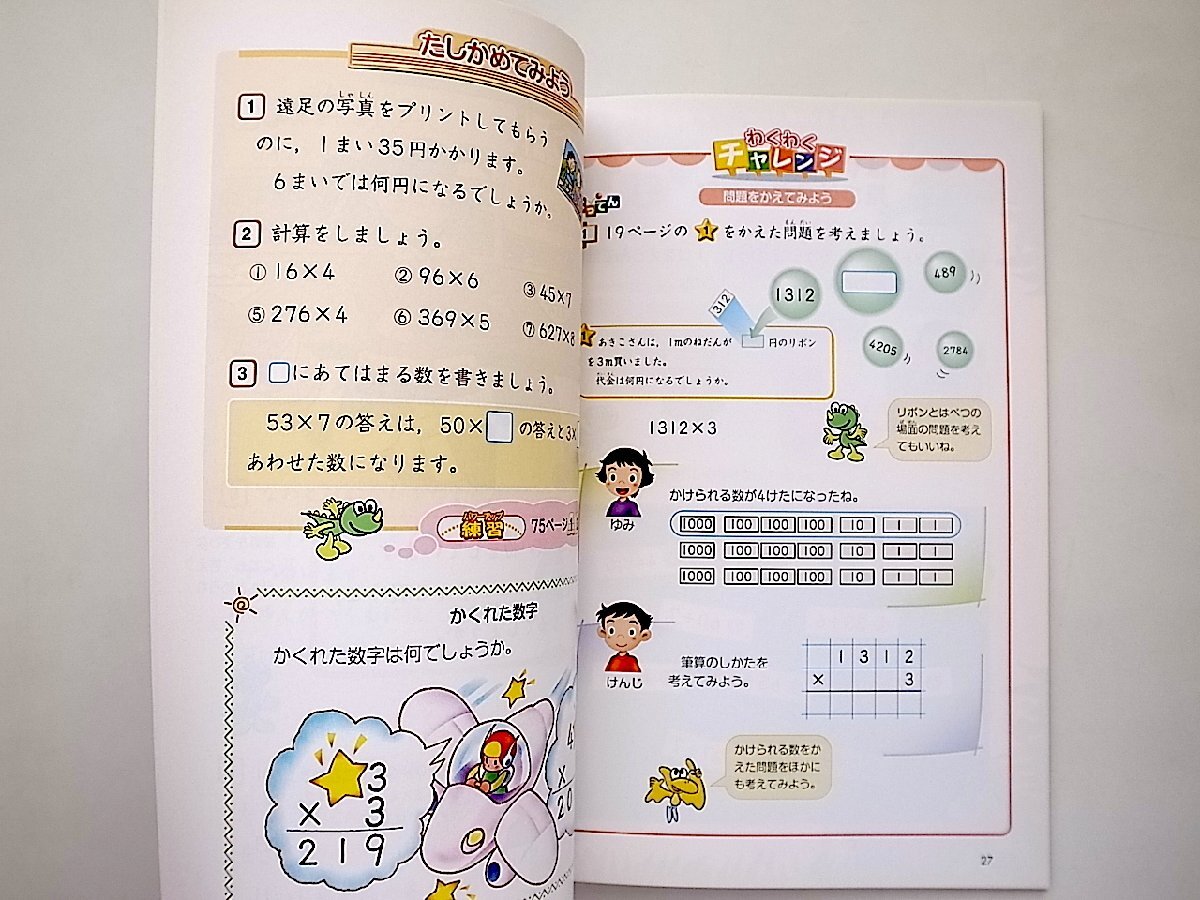 たしかめてみよう
1 遠足の写真をプリントしてもらう
しゃしん
のに，1まい35円かかります。
6まいでは何円になるでしょうか。
2 計算をしましょう。
① 16×4 ② 96×6 ③ 45×7
⑤ 276×4 ⑥ 369×5 ⑦ 627×8
3 □にあてはまる数を書きましょう。
53×7の答えは，50×□の答えと3×
あわせた数になります。
パワーアップ
練習 75ページ
かくれた数字
かくれた数字は何でしょうか。
3
× 3
219
×
20
わくわく
チャレンジ
問題をかえてみよう
1 19ページの 1 をかえた問題を考えましょう。
もんだい
312
1312
489
4205
2784
1 あきこさんは，1mのねだんが □ 円のリボン
を3m買いました。
代金は何円になるでしょうか。
だいきん
1312×3
リボンとはべつの
場面の問題を考え
ばめん
てもいいね。
ゆみ
かけられる数が4けたになったね。
1000 100 100 100 10 1 1
1000 100 100 100 10 1 1
1000 100 100 100 10 1 1
けんじ
筆算のしかたを
考えてみよう。
1312
× 3
かけられる数をか
えた問題をほかに
も考えてみよう。
27